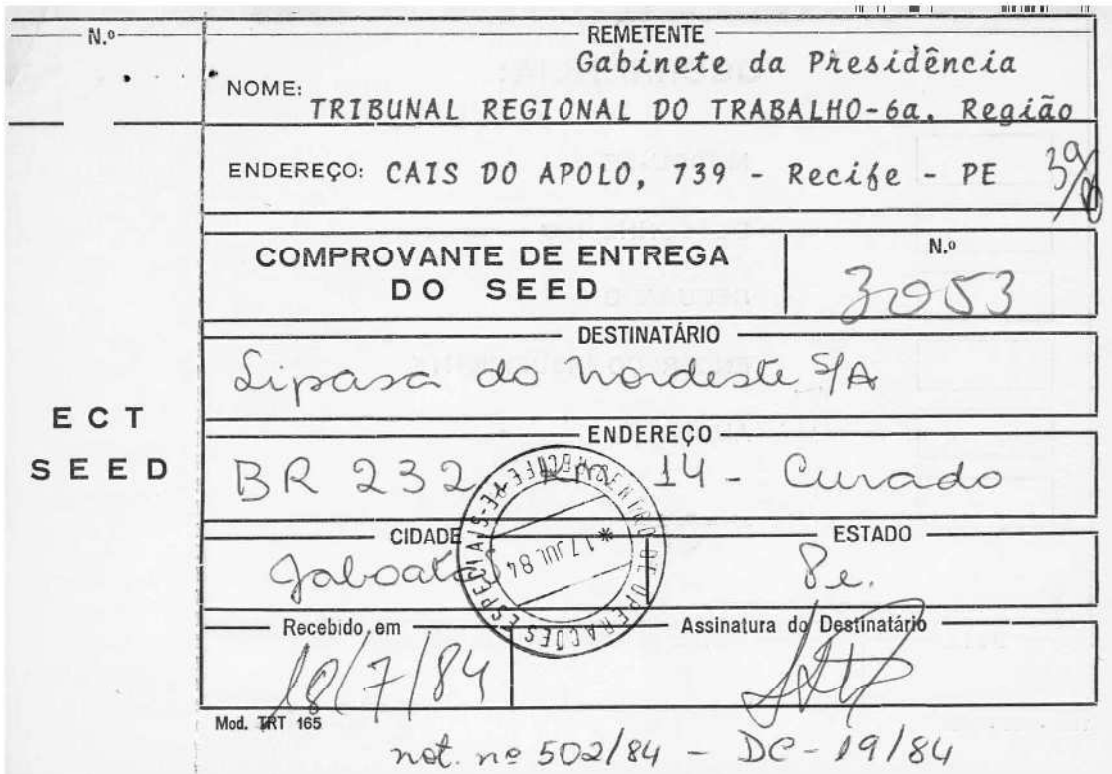 N.º
REMETENTE
Gabinete da Presidência
NOME:
TRIBUNAL REGIONAL DO TRABALHO-6a. Região
ENDEREÇO: CAIS DO APOLO, 739 - Recife - PE
39
COMPROVANTE DE ENTREGA
DO SEED
N.º
3053
DESTINATÁRIO
Lipasa do Nordeste S/A
ECT
SEED
ENDEREÇO
BR 232 Km 14 - Curado
CIDADE
Jaboatão
ESTADO
Pe.
CENTRO DE OPERAÇÕES ESPECIAIS
* 17 JUL 84
Recebido em
18/7/84
Assinatura do Destinatário
Mod. TRT 165
not. nº 502/84 - DC-19/84